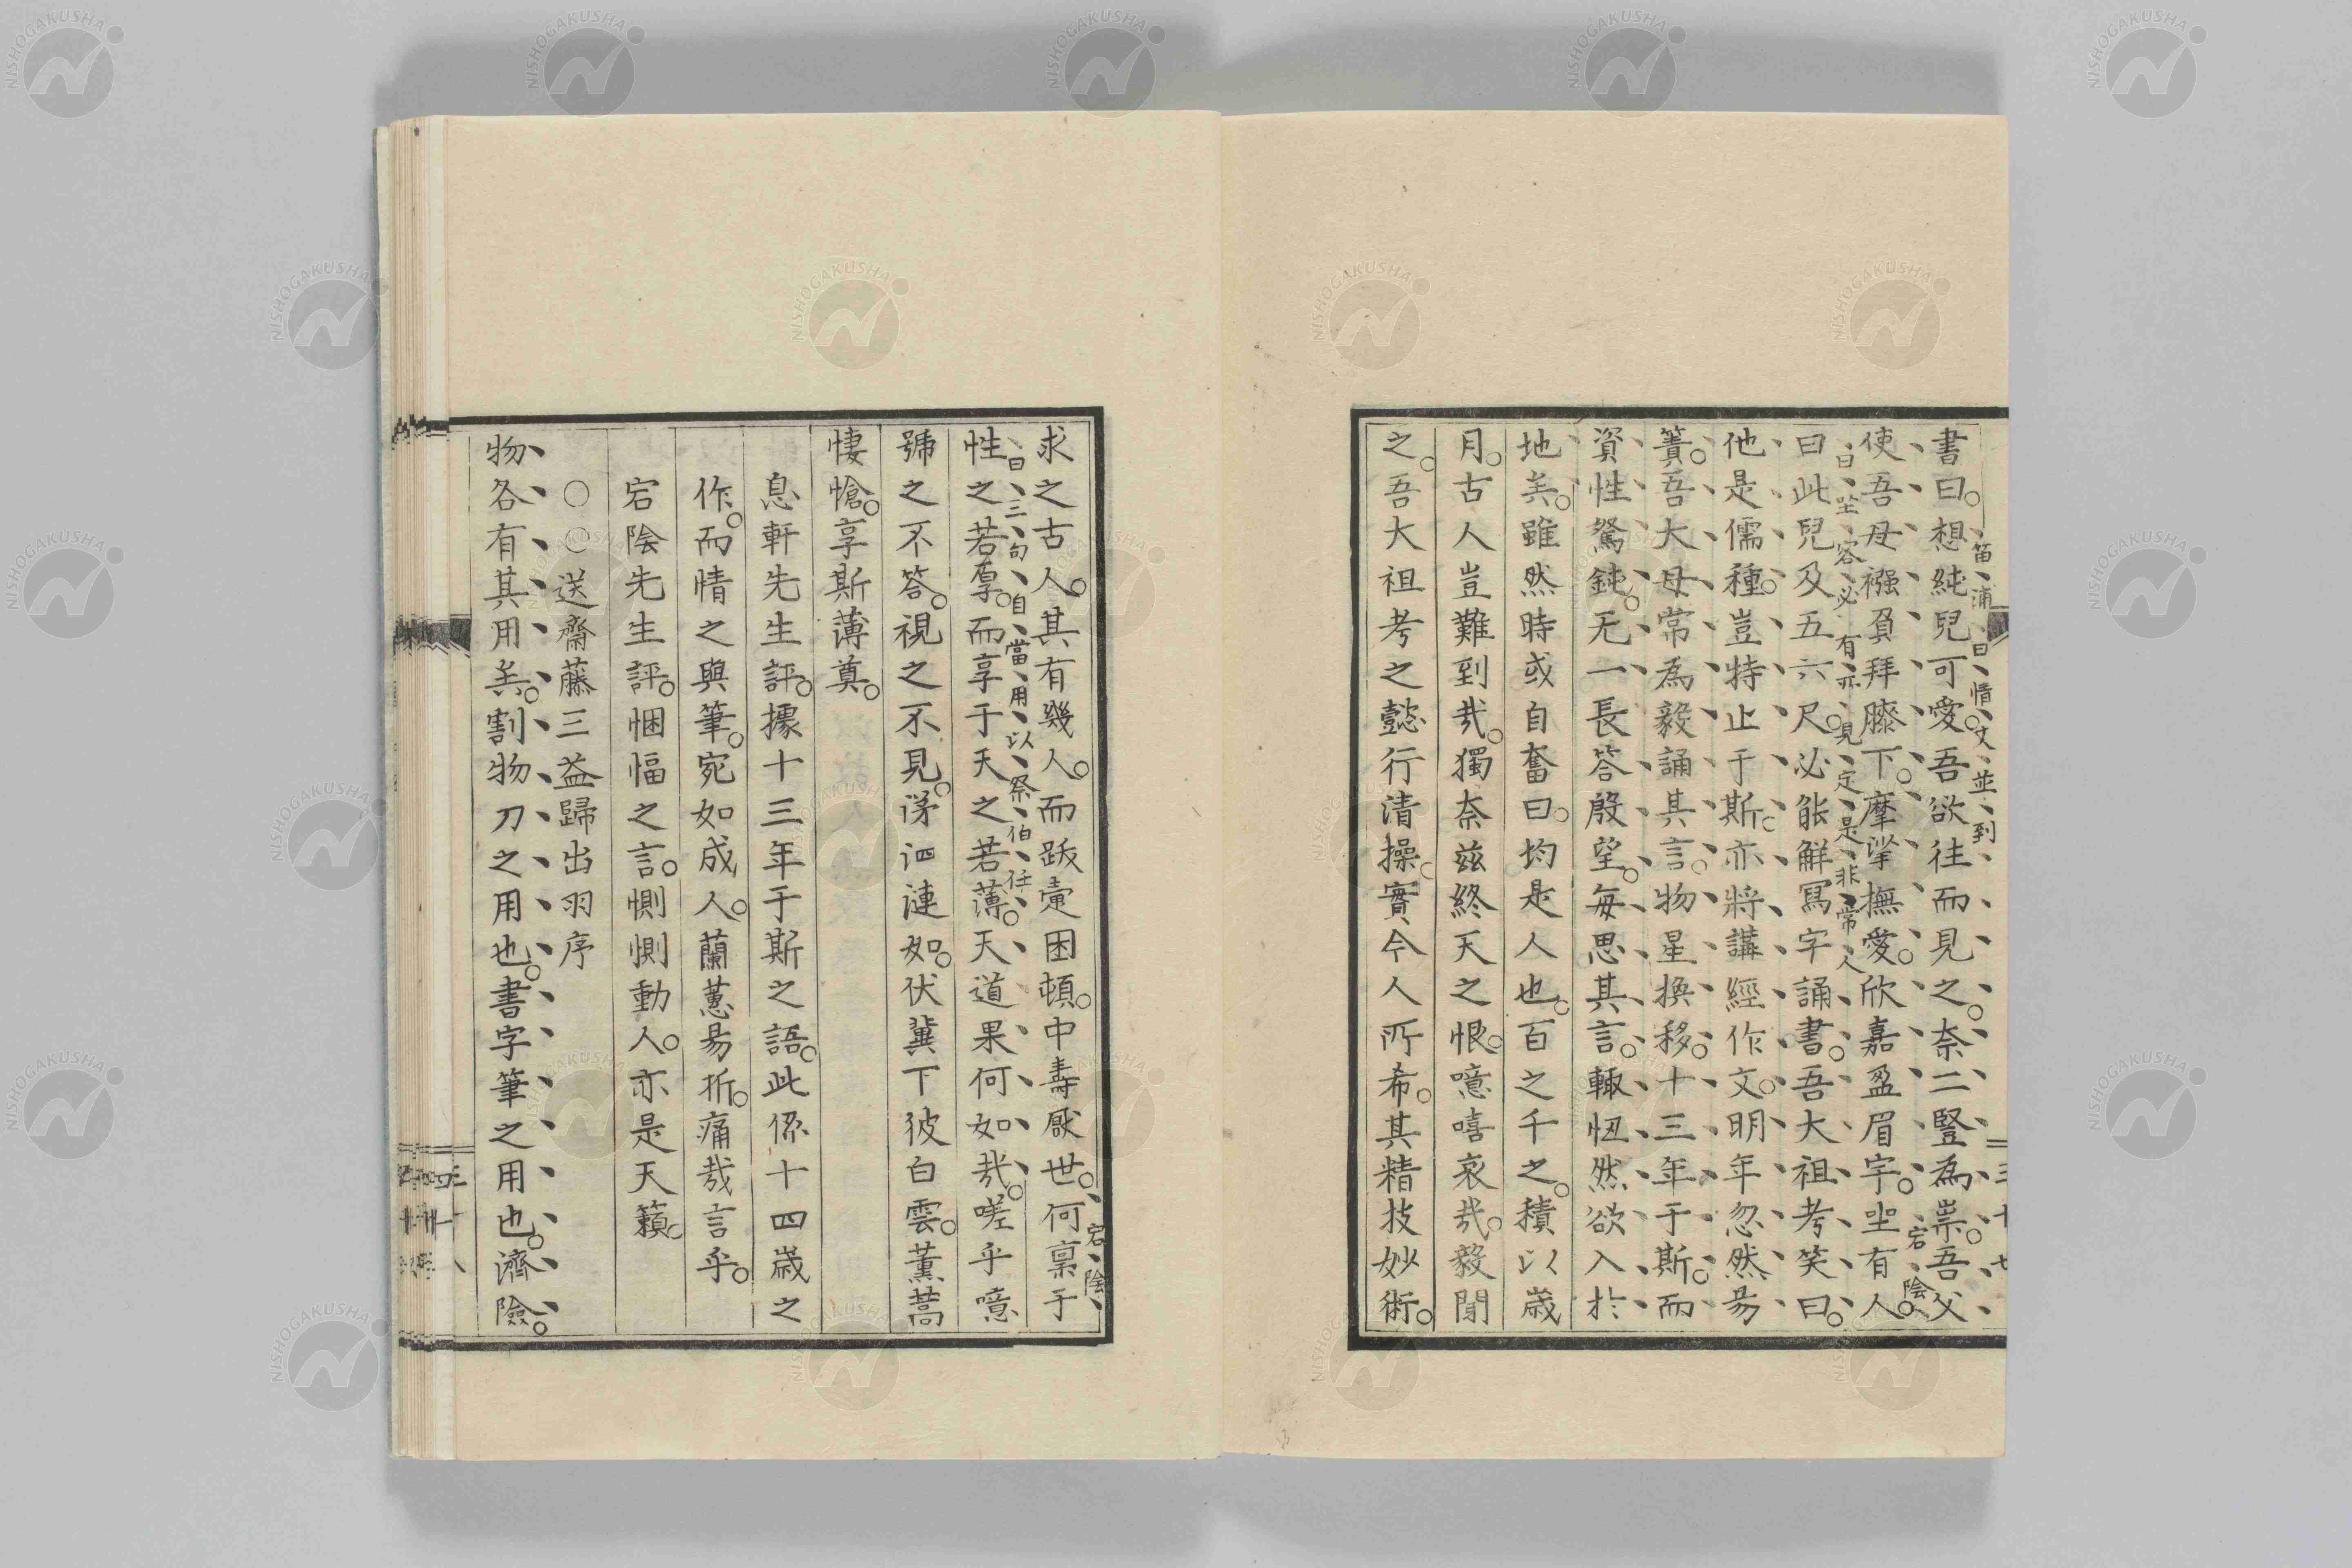 書曰。想純兒可愛。吾欲往而見之。奈二豎為祟。吾父
笛浦曰情文並到
使吾母襁負拜膝下。摩挲撫愛。欣嘉盈眉宇。坐有人。
宕陰
曰此兒及五六尺。必能解寫字誦書。吾大祖考笑曰。
曰坐客必有亦見定是非常人
他是儒種。豈特止于斯。亦將講經作文。明年忽然易
簀。吾大母常為毅誦其言。物星換移。十三年于斯。而
資性駑鈍。无一長答殷望。每思其言。輙忸然欲入於
地矣。雖然時或自奮曰。均是人也。百之千之。積以歲
月。古人豈難到哉。獨奈茲終天之恨。噫嘻哀哉。毅聞
之。吾大祖考之懿行清操。實今人所希。其精技妙術。
三十七
求之古人。其有幾人。而跋疐困頓。中壽厭世。何稟于
宕陰
曰三句自當用以祭伯任
性之若厚。而享于天之若薄。天道果何如哉。嗟乎噫
號之不答。視之不見。涕泗漣如。伏冀下彼白雲。薰蒿
悽愴。享斯薄奠。
息軒先生評。據十三年于斯之語。此係十四歲之
作。而情之與筆。宛如成人。蘭蕙易折。痛哉言乎。
宕陰先生評。悃愊之言。惻惻動人。亦是天籟。
○○送齋藤三益歸出羽序
物各有其用矣。割物刀之用也。書字筆之用也。濟險。